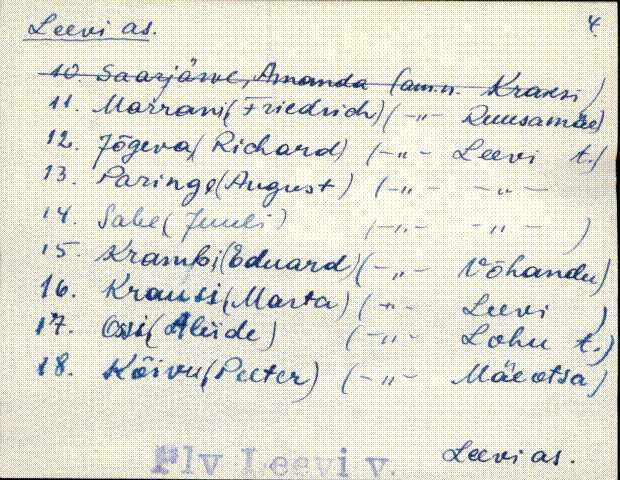 Leevi as. 4.
10 Saarjärve, Amanda (am.n. Krausi)
11. Morrani (Friedrich) (-"- Ruusamäe)
12. Jõgeva, (Richard) (-"- Leevi t.)
13. Paringe (August) (-"- -"-
14. Sabe (Juuli) (-"- -"- )
15. Krambi (Eduard) (-"- Võhandu)
16. Krausi (Marta) (-"- Leevi )
17. Ossi (Aliide) (-"- Lohu t.)
18. Kõivu, (Peeter) (-"- Mäeotsa)
Leevi as.
Plv Leevi v.